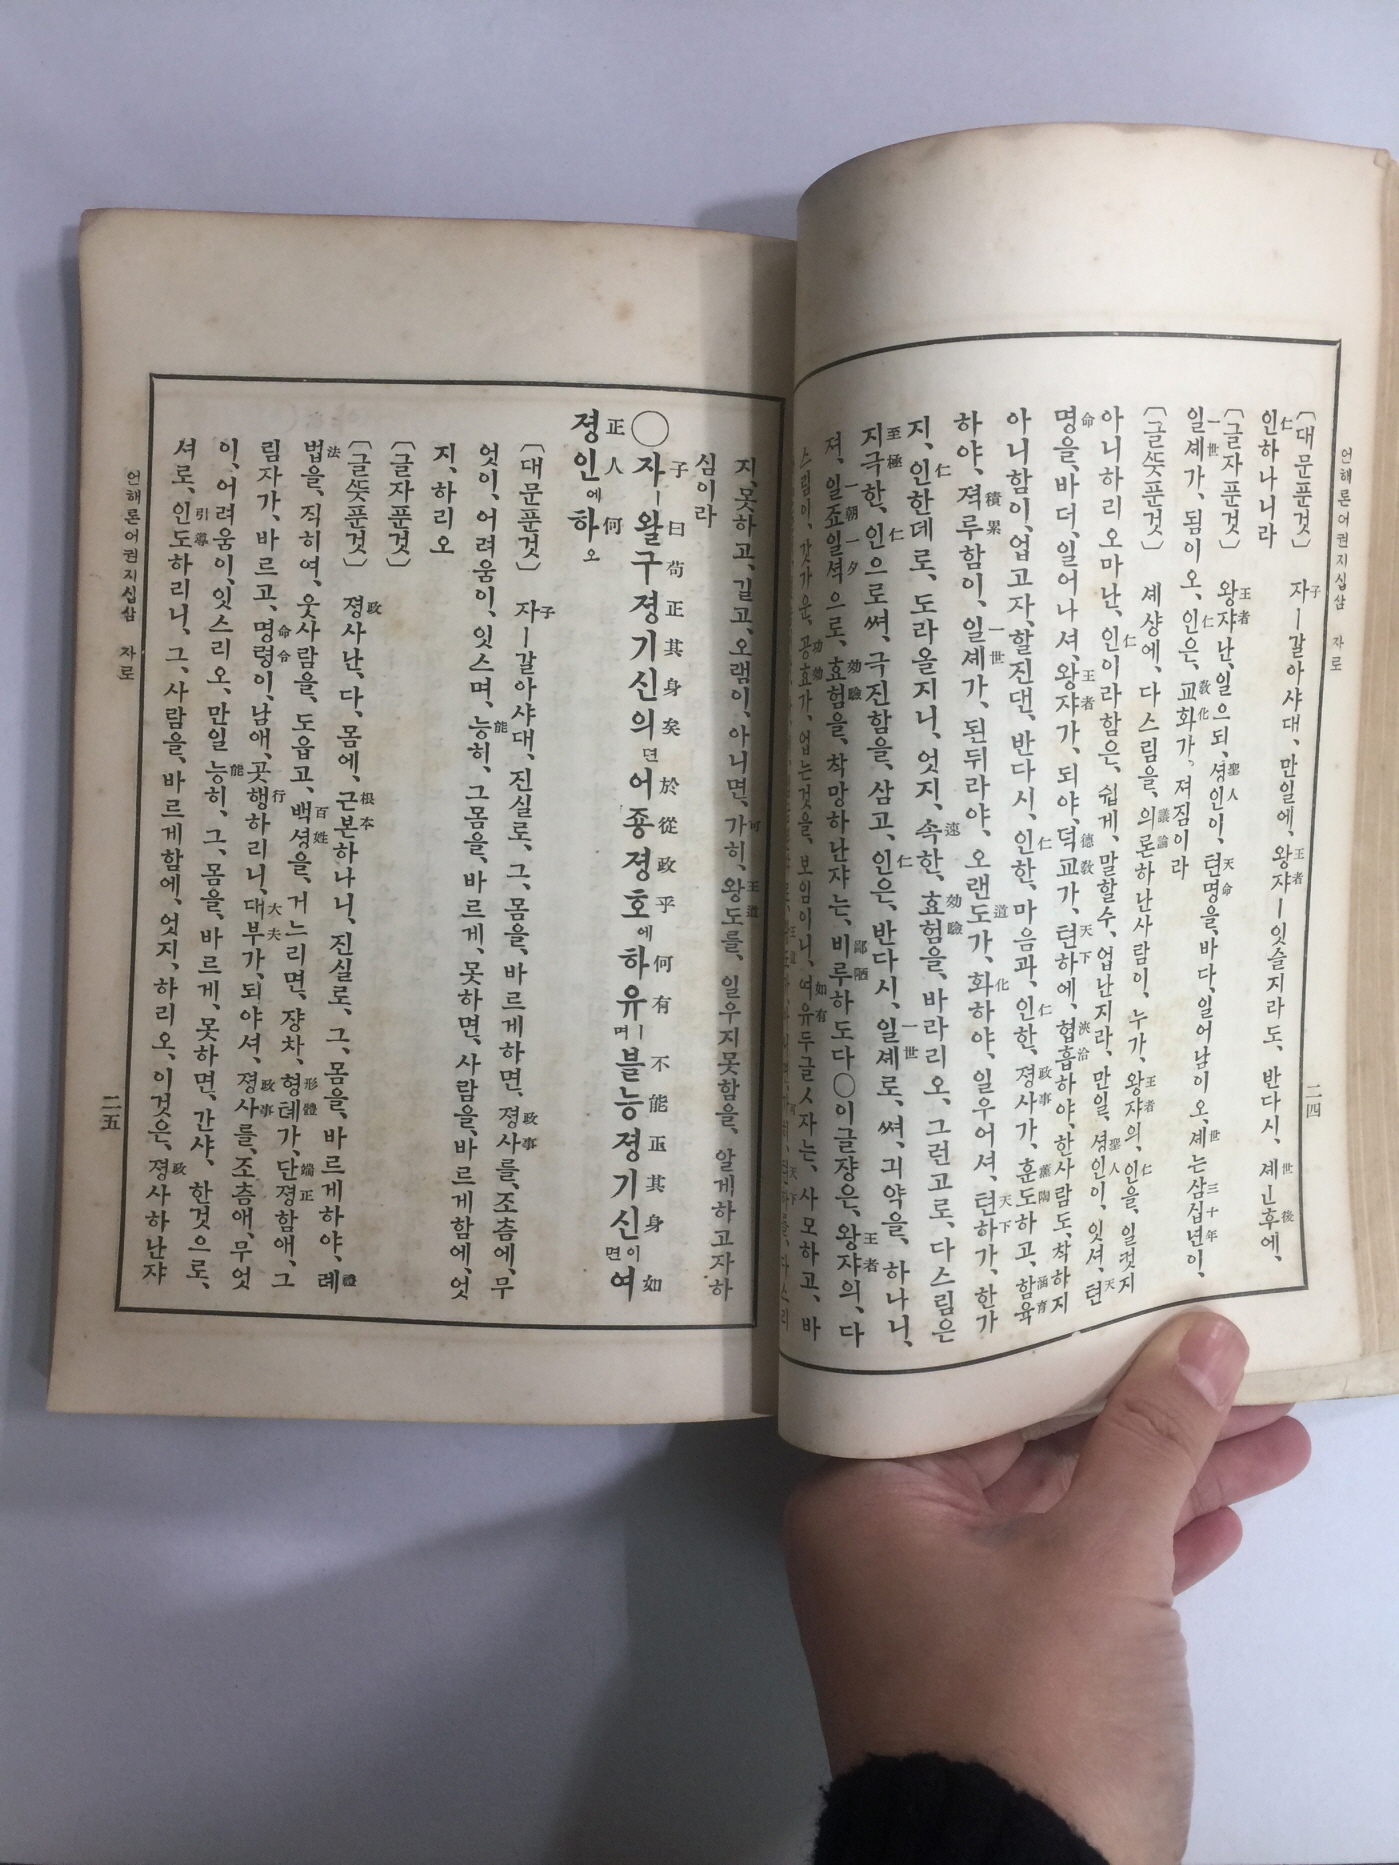 언해론어권지십삼 자로 二四
〔대문푼것〕 자子ㅣ갈아샤대、만일에、왕쟈王者ㅣ잇슬지라도、반다시、셰世ㄴ후後에、
인仁하나니라
〔글자푼것〕 왕쟈王者난、일으되、셩인聖人이、텬명天命을、바다、일어남이오、셰世는、삼십년三十年이、
일셰一世가、됨이오、인仁은、교화敎化가、져짐이라
〔글뜻푼것〕 셰샹에、다스림을、의론議論하난사람이、누가、왕쟈王者의、인仁을、일컷지
아니하리오마난、인仁이라함은、쉽게、말할수、업난지라、만일、셩인聖人이、잇셔、텬天
명命을、바더、일어나셔、왕쟈王者가、되야、덕교德敎가、텬하天下에、협흡浹洽하야、한사람도、착하지
아니함이、업고자、할진댄、반다시、인仁한、마음과、인仁한、졍사政事가、훈도薰陶하고、함육涵育
하야、젹루積累함이、일셰一世가、된뒤라야、오랜도道가、화化하야、일우어셔、텬하天下가、한가
지、인仁한데로、도라올지니、엇지、속速한、효험効驗을、바라리오、그런고로、다스림은
지극至極한、인仁으로써、극진함을、삼고、인仁은、반다시、일셰一世로、써、긔약을、하나니、
져、일죠일셕一朝一夕으로、효험効驗을、착망하난쟈는、비루鄙陋하도다○이글쟝은、왕쟈王者의、다
스림이、갓가운、공효功効가、업는것을、보임이니、여유如有두글ㅅ자는、사모하고、바
지、못하고、길고、오램이、아니면、가可히、왕도王道를、일우지못함을、알게하고자하
심이라
○자子ㅣ왈曰구苟졍正기其신身의矣면어於죵從졍政호乎에하何유有ㅣ며블不능能졍正기其신身이면여如
졍正인人에하何오
〔대문푼것〕 자子ㅣ갈아샤대、진실로、그、몸을、바르게하면、졍사政事를、조츰에、무
엇이、어려움이、잇스며、능能히、그몸을、바르게、못하면、사람을、바르게함에、엇
지、하리오
〔글자푼것〕
〔글뜻푼것〕 졍사政事난、다、몸에、근본根本하나니、진실로、그、몸을、바르게하야、례禮
법法을、직히여、웃사람을、도읍고、백셩百姓을、거느리면、쟝차、형톄形體가、단졍端正함애、그
림자가、바르고、명령命令이、남애、곳행行하리니、대부大夫가、되야셔、졍사政事를、조츰애、무엇
이、어려움이、잇스리오、만일능能히、그、몸을、바르게、못하면、간샤、한것으로、
셔로、인도引導하리니、그、사람을、바르게함에、엇지、하리오、이것은、졍政사하난쟈
언해론어권지십삼 자로 二五